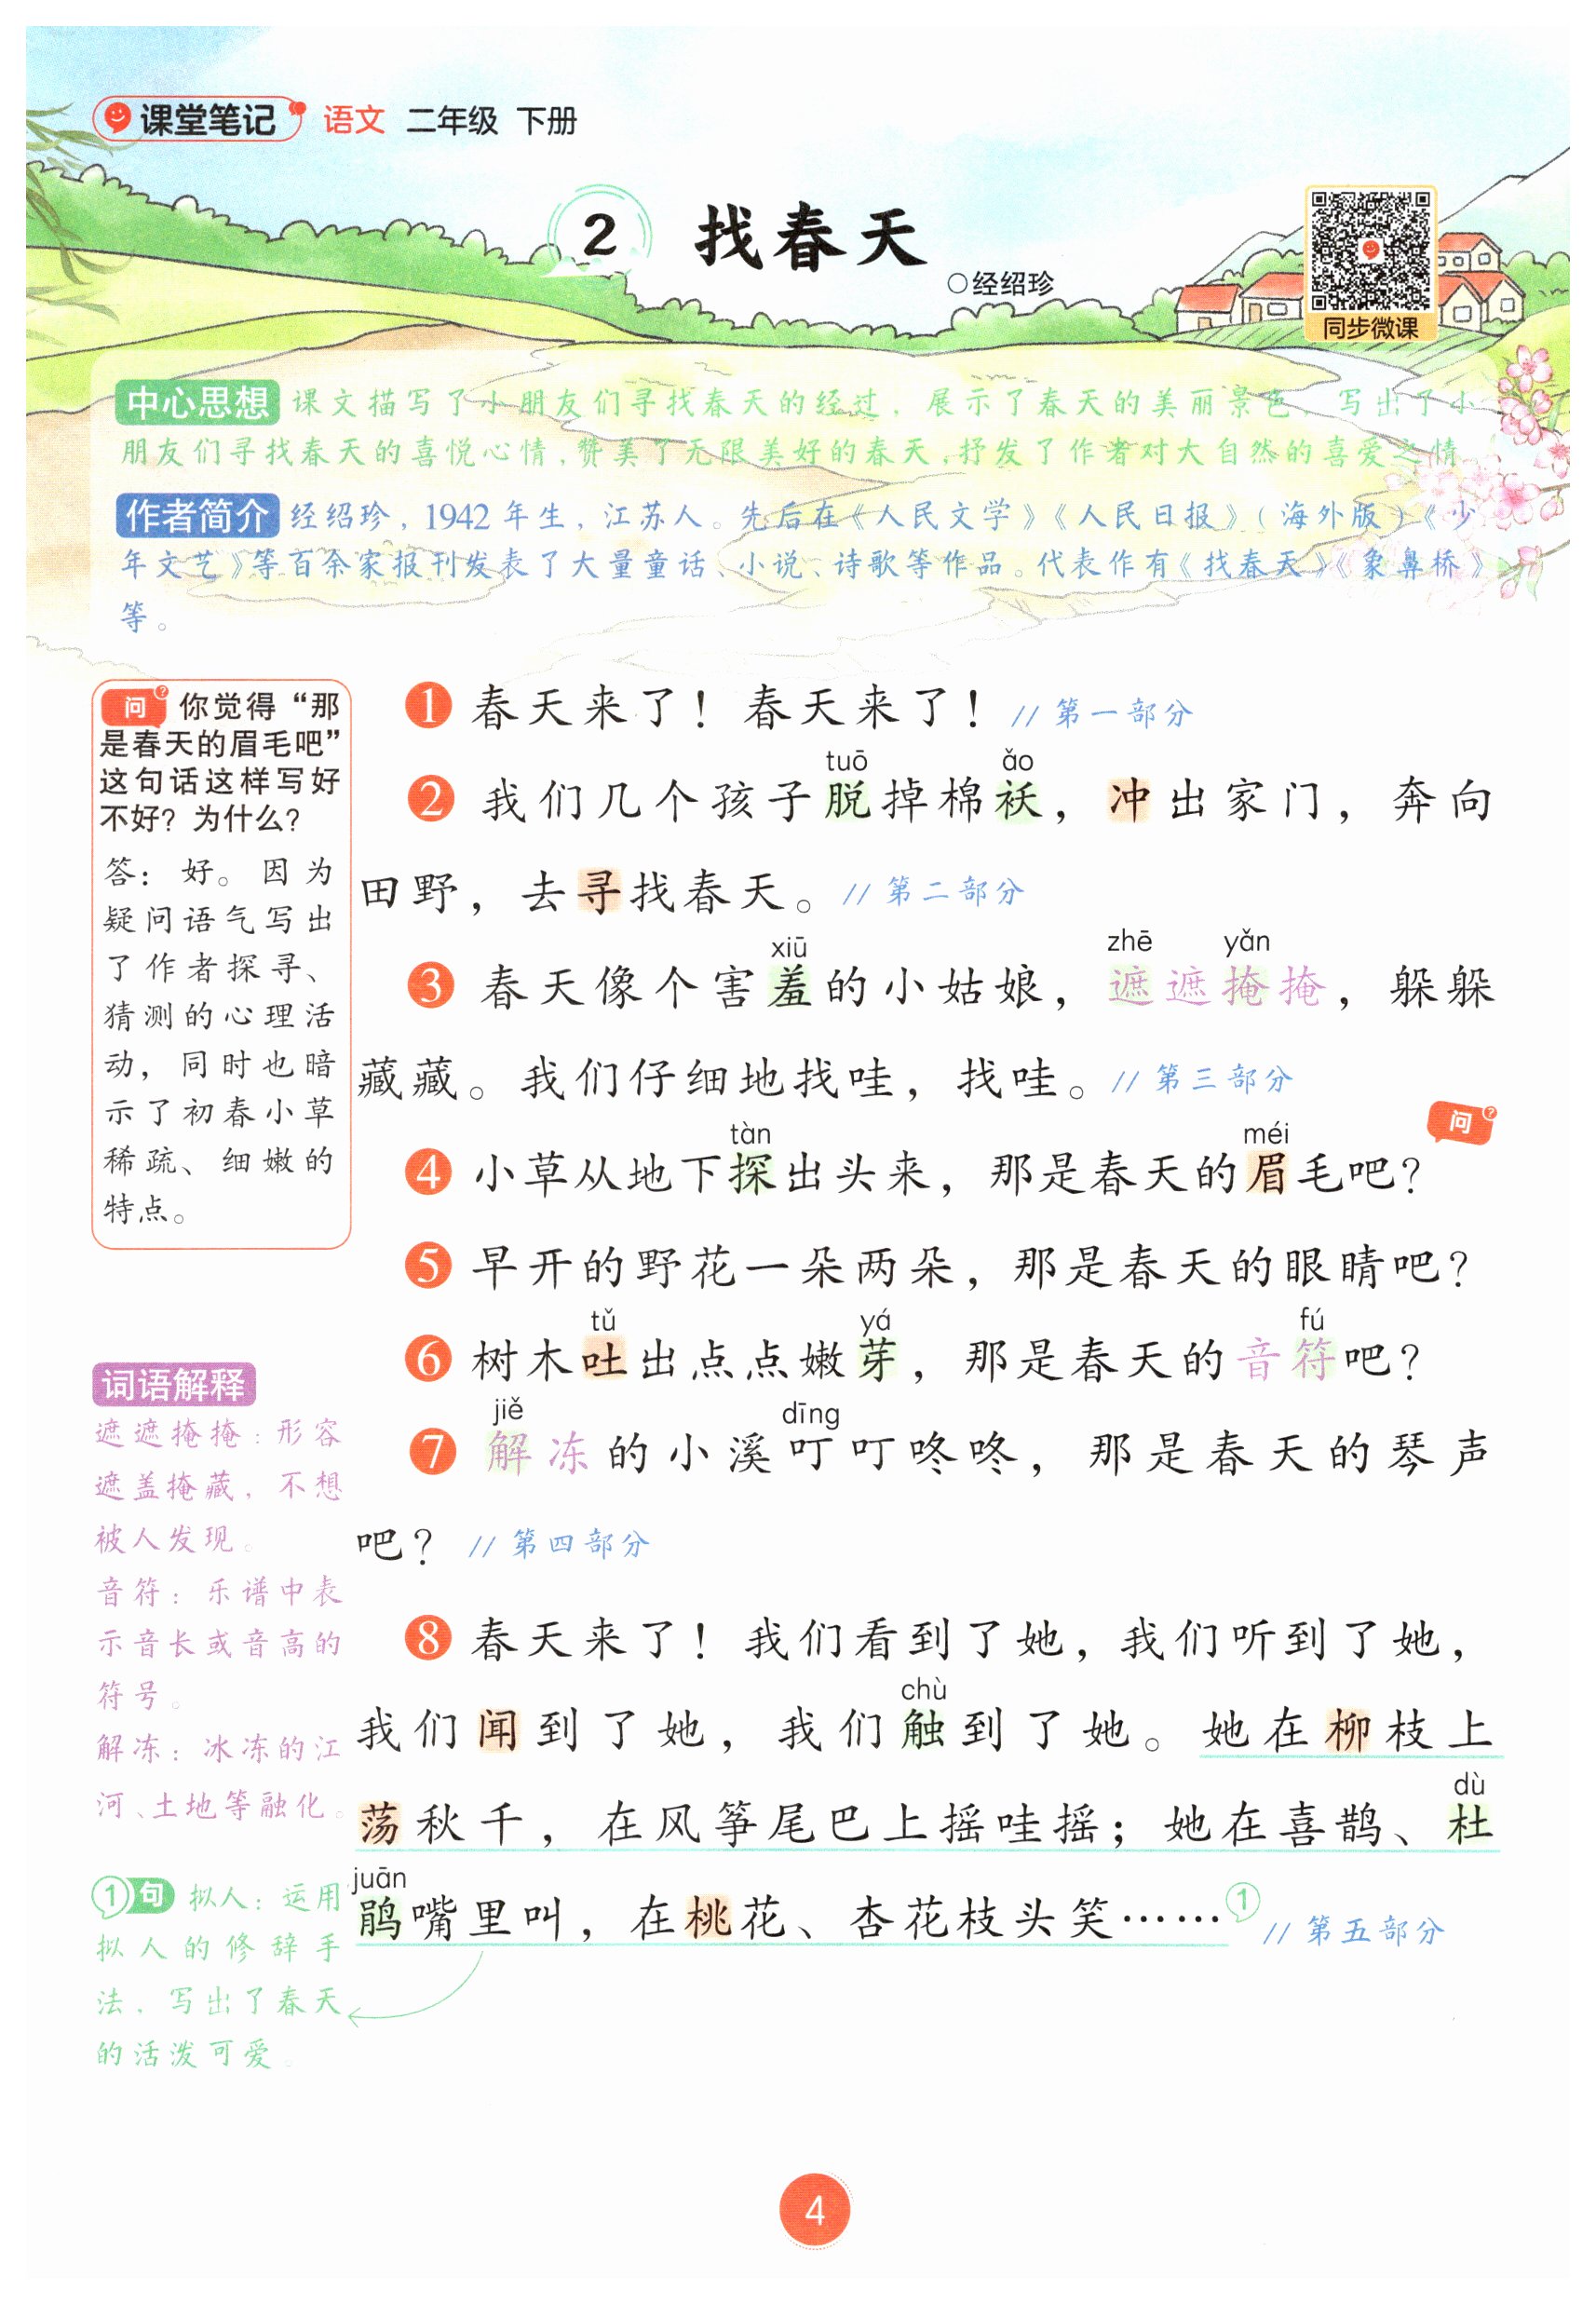 课堂笔记 语文 二年级 下册
2 找春天
○经绍珍
同步微课
中心思想 课文描写了小朋友们寻找春天的经过，展示了春天的美丽景色，写出了小
朋友们寻找春天的喜悦心情，赞美了无限美好的春天，抒发了作者对大自然的喜爱之情
作者简介 经绍珍，1942年生，江苏人。先后在《人民文学》《人民日报》（海外版）《少
年文艺》等百余家报刊发表了大量童话、小说、诗歌等作品。代表作有《找春天》《象鼻桥》
等。
问? 你觉得“那
是春天的眉毛吧”
这句话这样写好
不好？为什么？
答：好。因为
疑问语气写出
了作者探寻、
猜测的心理活
动，同时也暗
示了初春小草
稀疏、细嫩的
特点。
词语解释
遮遮掩掩：形容
遮盖掩藏，不想
被人发现。
音符：乐谱中表
示音长或音高的
符号。
解冻：冰冻的江
河、土地等融化。
1句 拟人：运用
拟人的修辞手
法，写出了春天
的活泼可爱。
1 春天来了！春天来了！// 第一部分
tuō ǎo
2 我们几个孩子脱掉棉袄，冲出家门，奔向
田野，去寻找春天。// 第二部分
xiū zhē yǎn
3 春天像个害羞的小姑娘，遮遮掩掩，躲躲
藏藏。我们仔细地找哇，找哇。// 第三部分
tàn méi 问?
4 小草从地下探出头来，那是春天的眉毛吧？
5 早开的野花一朵两朵，那是春天的眼睛吧？
tǔ yá fú
6 树木吐出点点嫩芽，那是春天的音符吧？
jiě dīng
7 解冻的小溪叮叮咚咚，那是春天的琴声
吧？ // 第四部分
8 春天来了！我们看到了她，我们听到了她，
chù
我们闻到了她，我们触到了她。她在柳枝上
dù
荡秋千，在风筝尾巴上摇哇摇；她在喜鹊、杜
juān
鹃嘴里叫，在桃花、杏花枝头笑……1 // 第五部分
4